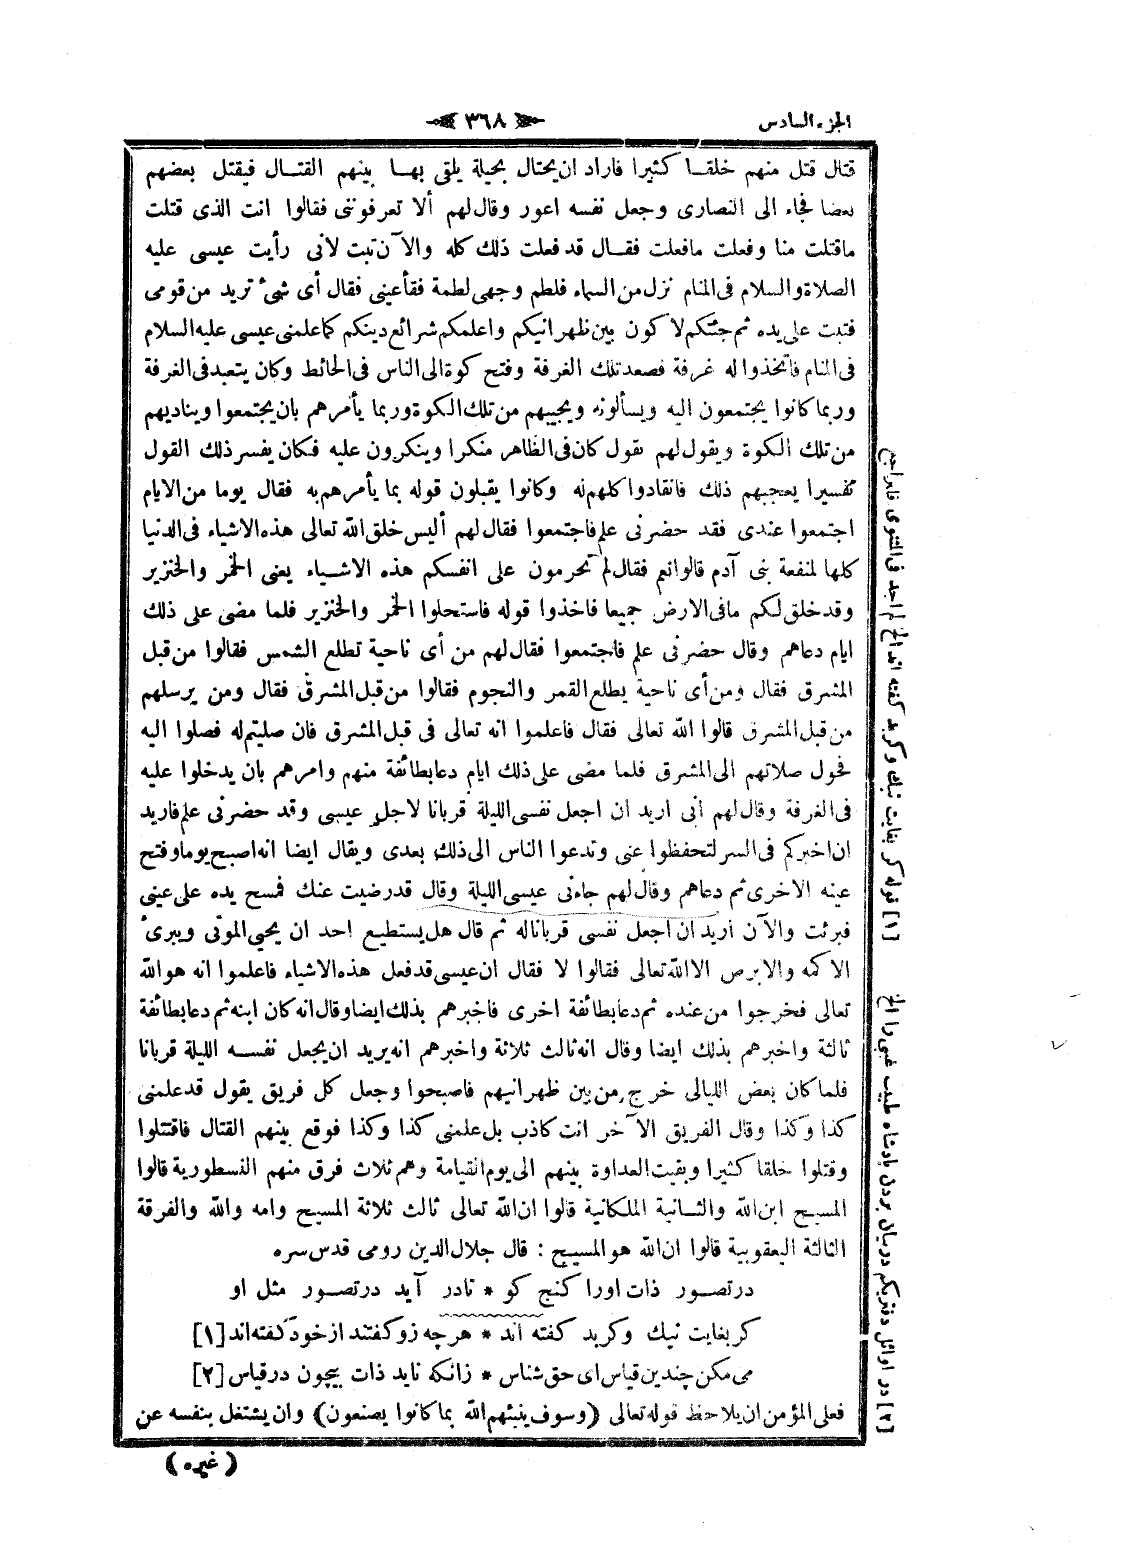 الجزء السادس
٣٦٨
قتال قتل منهم خلقا كثيرا فاراد ان يحتال بحيلة يلقى بها بينهم القتال فيقتل بعضهم
بعضا فجاء الى النصارى وجعل نفسه اعور وقال لهم ألا تعرفوننى فقالوا انت الذى قتلت
ماقتلت منا وفعلت مافعلت فقال قد فعلت ذلك كله والآن تبت لانى رأيت عيسى عليه
الصلاة والسلام فى المنام نزل من السماء فلطم وجهى لطمة فقأ عينى فقال أى شىء تريد من قومى
فتبت على يده ثم جئتكم لاكون بين ظهرانيكم واعلمكم شرائع دينكم كما علمنى عيسى عليه السلام
فى المنام فاتخذوا له غرفة فصعد تلك الغرفة وفتح كوة الى الناس فى الحائط وكان يتعبد فى الغرفة
وربما كانوا يجتمعون اليه ويسألونه ويجيبهم من تلك الكوة وربما يأمرهم بان يجتمعوا ويناديهم
من تلك الكوة ويقول لهم بقول كان فى الظاهر منكرا وينكرون عليه فكان يفسر ذلك القول
تفسيرا يعجبهم ذلك فانقادوا كلهم له وكانوا يقبلون قوله بما يأمرهم به فقال يوما من الايام
اجتمعوا عندى فقد حضرنى علم فاجتمعوا فقال لهم أليس خلق الله تعالى هذه الاشياء فى الدنيا
كلها لمنفعة بنى آدم قالوا نعم فقال لم تحرمون على انفسكم هذه الاشياء يعنى الخمر والخنزير
وقد خلق لكم مافى الارض جميعا فاخذوا قوله فاستحلوا الخمر والخنزير فلما مضى على ذلك
ايام دعاهم وقال حضرنى علم فاجتمعوا فقال لهم من أى ناحية تطلع الشمس فقالوا من قبل
المشرق فقال ومن أى ناحية يطلع القمر والنجوم فقالوا من قبل المشرق فقال ومن يرسلهم
من قبل المشرق قالوا الله تعالى فقال فاعلموا انه تعالى فى قبل المشرق فان صليتم له فصلوا اليه
فحول صلاتهم الى المشرق فلما مضى على ذلك ايام دعا بطائفة منهم وامرهم بان يدخلوا عليه
فى الغرفة وقال لهم انى اريد ان اجعل نفسى الليلة قربانا لاجل عيسى وقد حضرنى علم فاريد
ان اخبركم فى السر لتحفظوا عنى وتدعوا الناس الى ذلك بعدى ويقال ايضا انه اصبح يوما وفتح
عينه الاخرى ثم دعاهم وقال لهم جاءنى عيسى الليلة وقال قد رضيت عنك فمسح يده على عينى
فبرئت والآن اريد ان اجعل نفسى قربانا له ثم قال هل يستطيع احد ان يحيى الموتى ويبرئ
الاكمه والابرص الا الله تعالى فقالوا لا فقال ان عيسى قد فعل هذه الاشياء فاعلموا انه هو الله
تعالى فخرجوا من عنده ثم دعا بطائفة اخرى فاخبرهم بذلك ايضا وقال انه كان ابنه ثم دعا بطائفة
ثالثة واخبرهم بذلك ايضا وقال انه ثالث ثلاثة واخبرهم انه يريد ان يجعل نفسه الليلة قربانا
فلما كان بعض الليالى خرج من بين ظهرانيهم فاصبحوا وجعل كل فريق يقول قد علمنى
كذا وكذا وقال الفريق الآخر انت كاذب بل علمنى كذا وكذا فوقع بينهم القتال فاقتتلوا
وقتلوا خلقا كثيرا وبقيت العداوة بينهم الى يوم القيامة وهم ثلاث فرق منهم النسطورية قالوا
المسيح ابن الله والثانية الملكانية قالوا ان الله تعالى ثالث ثلاثة المسيح وامه والله والفرقة
الثالثة اليعقوبية قالوا ان الله هو المسيح : قال جلال الدين رومى قدس سره
در تصور ذات اورا كنج كو * تادر آيد در تصور مثل او
كر بغايت نيك وكربد كفته اند * هرچه زو كفتند از خود كفته اند [١]
مى مكن چندين قياس اى حق شناس * زانكه نايد ذات بيچون در قياس [٢]
فعلى المؤمن ان يلاحظ قوله تعالى (وسوف ينبئهم الله بما كانوا يصنعون) وان يشتغل بنفسه عن
(غيره)
[١] قوله كر بغايت نيك وكربد كفته اند الخ لم اجد فى المثنوى فليراجع
[٢] در اوائل دفتر يكم در بيان بردن پادشاه طبيب غيبى را الخ